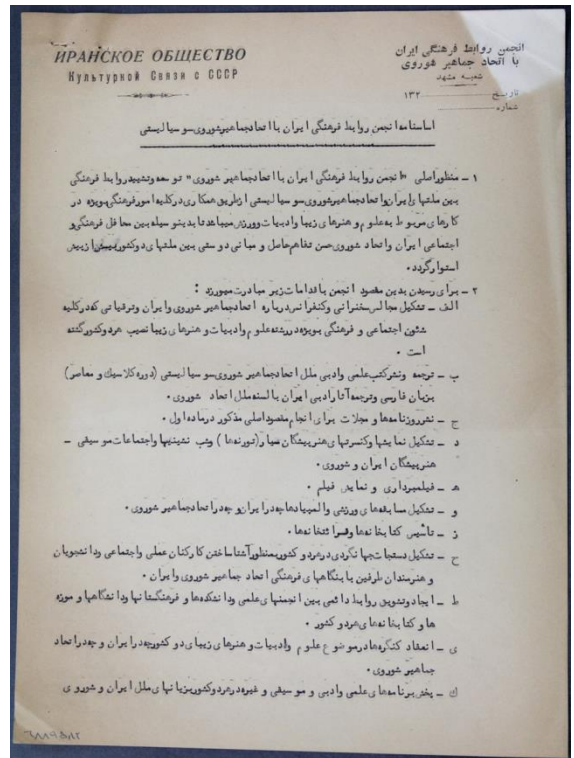 ИРАНСКОЕ ОБЩЕСТВО
Культурной Связи с СССР
انجمن روابط فرهنگی ایران
با اتحاد جماهیر شوروی
شعبه مشهد
تاریخ ۱۳۲
شماره
اساسنامه انجمن روابط فرهنگی ایران با اتحاد جماهیر شوروی سوسیالیستی
۱ – منظور اصلی «انجمن روابط فرهنگی ایران با اتحاد جماهیر شوروی» توسعه و تشیید روابط فرهنگی
بین ملتهای ایران و اتحاد جماهیر شوروی سوسیالیستی از طریق همکاری در کلیه امور فرهنگی بویژه در
کارهای مربوط به علوم و هنرهای زیبا و ادبیات و ورزش میباشد تا بدینوسیله بین محافل فرهنگی و
اجتماعی ایران و اتحاد شوروی حسن تفاهم حاصل و مبانی دوستی بین ملتهای دو کشور بیش از پیش
استوار گردد.
۲ – برای رسیدن بدین مقصود انجمن باقدامات زیر مبادرت میورزد :
الف – تشکیل مجالس سخنرانی و کنفرانس درباره اتحاد جماهیر شوروی و ایران و ترقیاتی که در کلیه
شئون اجتماعی و فرهنگی بویژه در رشته علوم و ادبیات و هنرهای زیبا نصیب هر دو کشور گشته
است .
ب – ترجمه و نشر کتب علمی و ادبی ملل اتحاد جماهیر شوروی سوسیالیستی (دوره کلاسیک و معاصر)
بزبان فارسی و ترجمه آثار ادبی ایران با لسنه ملل اتحاد شوروی .
ج – نشر روزنامه‌ها و مجلات برای انجام مقصود اصلی مذکور در ماده اول .
د – تشکیل نمایشها و کنسرتهای هنرپیشگان سیار (تورنه‌ها) و شب نشینیها و اجتماعات موسیقی –
هنرپیشگان ایران و شوروی .
ه – فیلمبرداری و نمایش فیلم .
و – تشکیل مسابقه‌های ورزشی و المپیادها چه در ایران و چه در اتحاد جماهیر شوروی .
ز – تأسیس کتابخانه‌ها و قرائتخانه‌ها .
ح – تشکیل دستجات جهانگردی در هر دو کشور بمنظور آشنا ساختن کارکنان عملی و اجتماعی و دانشجویان
و هنرمندان طرفین با بنگاههای فرهنگی اتحاد جماهیر شوروی و ایران .
ط – ایجاد و تشویق روابط دائمی بین انجمنهای علمی و دانشکده‌ها و فرهنگستانها و دانشگاهها و موزه
ها و کتابخانه‌های هر دو کشور .
ی – انعقاد کنگره‌ها در موضوع علوم و ادبیات و هنرهای زیبای دو کشور چه در ایران و چه در اتحاد
جماهیر شوروی .
ک – پخش برنامه‌های علمی و ادبی و موسیقی و غیره در هر دو کشور بزبانهای ملل ایران و شوروی